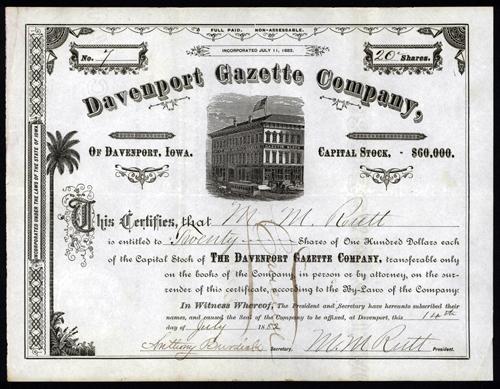 FULL PAID. NON-ASSESSABLE.
INCORPORATED JULY 11, 1882.
No. 7
20 Shares.
Davenport Gazette Company,
OF DAVENPORT, IOWA.
CAPITAL STOCK, - $60,000.
INCORPORATED UNDER THE LAWS OF THE STATE OF IOWA
This Certifies, that M. M. Rutt
is entitled to Twenty Shares of One Hundred Dollars each
of the Capital Stock of THE DAVENPORT GAZETTE COMPANY, transferable only
on the books of the Company, in person or by attorney, on the sur-
render of this certificate, according to the By-Laws of the Company:
In Witness Whereof, The President and Secretary have hereunto subscribed their
names, and caused the Seal of the Company to be affixed, at Davenport, this 14th
day of July 1882
Anthony Burdick Secretary. M. M. Rutt President.